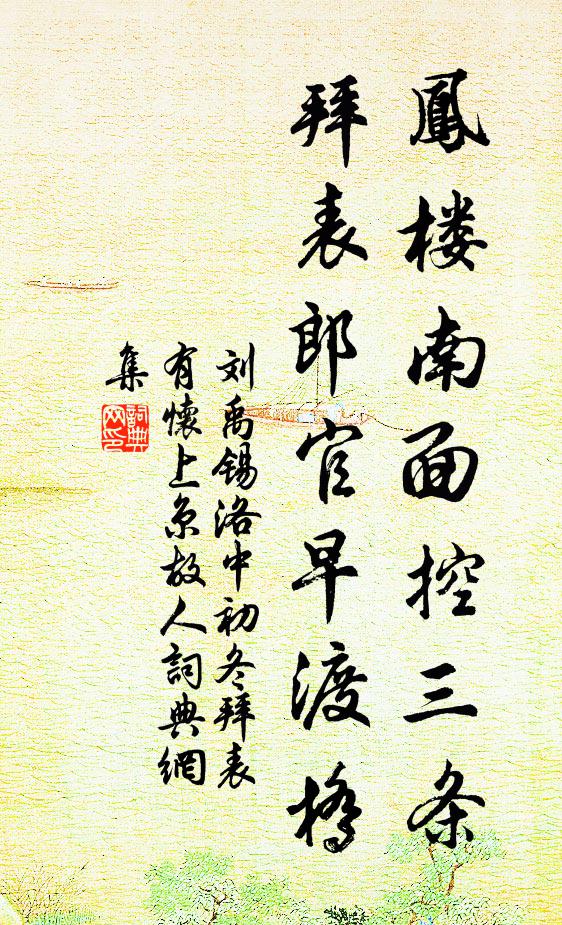 鳳楼南面控三条
拜表郎官早渡橋
刘禹锡洛中初冬拜表
有懷上京故人詞典網
集
詞典
网印